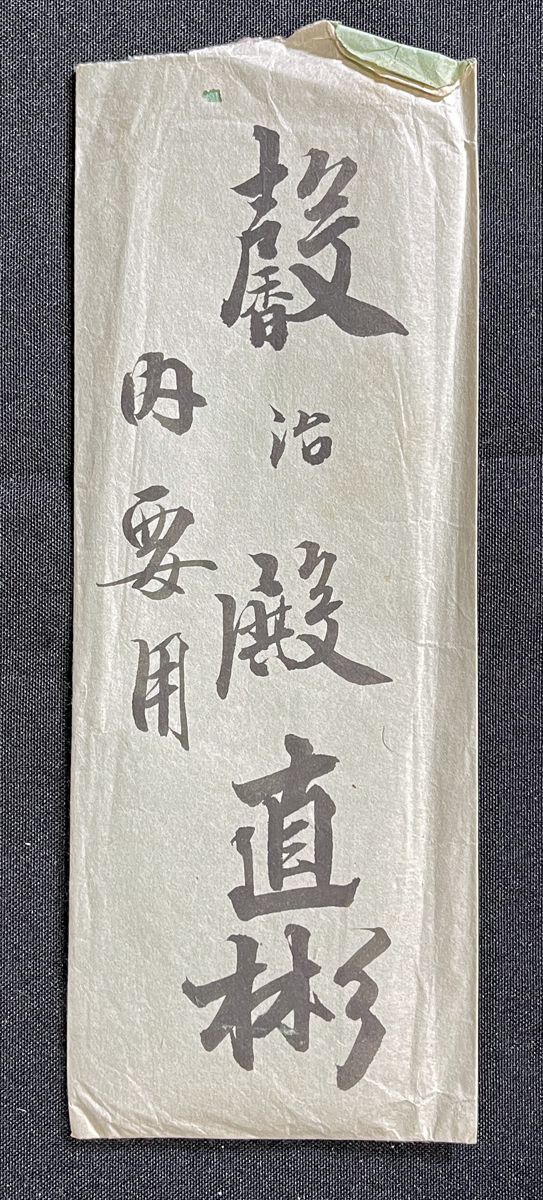 馨治殿直彬
内要用